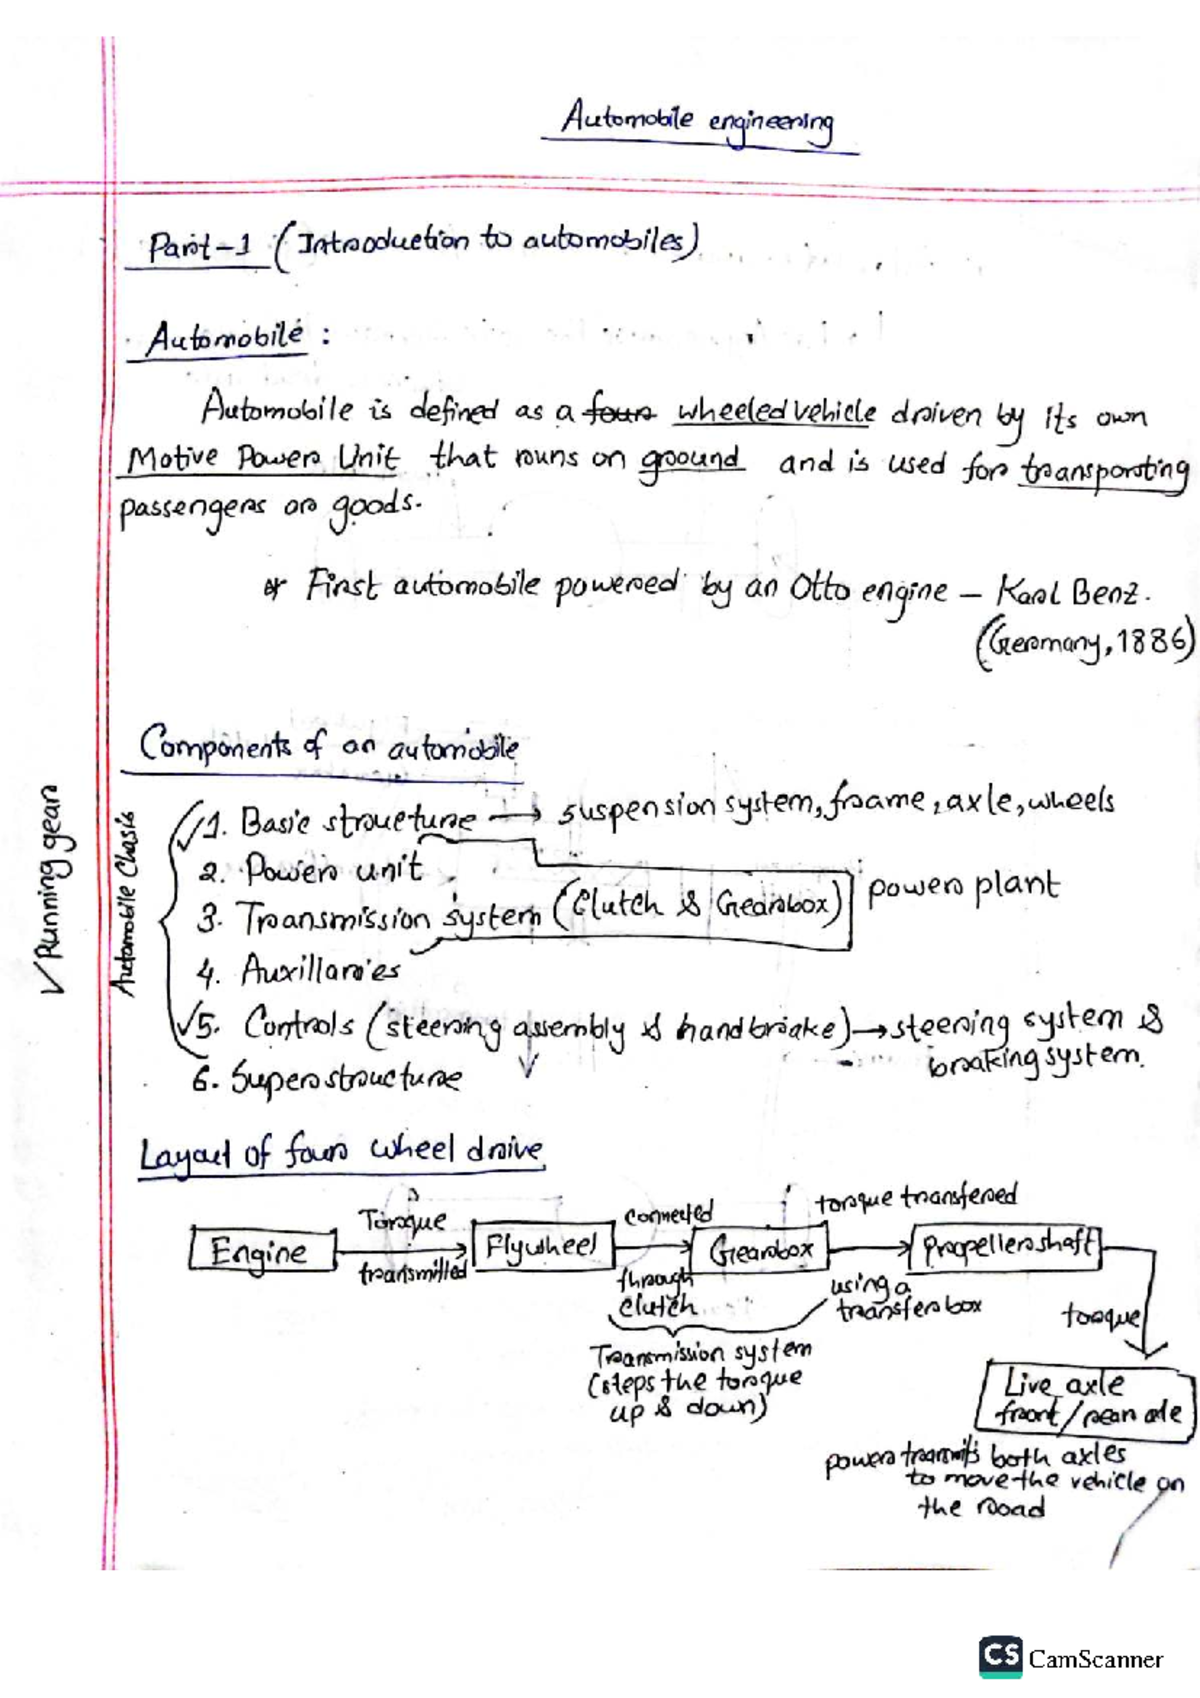 Automobile engineering
Part-1 (Introduction to automobiles)
Automobile :
Automobile is defined as a four wheeled vehicle driven by its own
Motive Power Unit that runs on ground and is used for transporting
passengers or goods.
* First automobile powered by an Otto engine – Karl Benz.
(Germany, 1886)
Components of an automobile
✓ Running gear
Automobile Chasis
✓1. Basic structure → suspension system, frame, axle, wheels
2. Power unit
3. Transmission system (Clutch & Gearbox)
power plant
4. Auxillaries
✓5. Controls (steering assembly & handbrake) → steering system &
braking system.
6. Superstructure
Layout of four wheel drive
Engine
Torque
transmitted
Flywheel
connected
through
clutch
Gearbox
torque transfered
using a
transfer box
Propellershaft
torque
Transmission system
(steps the torque
up & down)
Live axle
front/rear axle
power transmits both axles
to move the vehicle on
the road
CS CamScanner